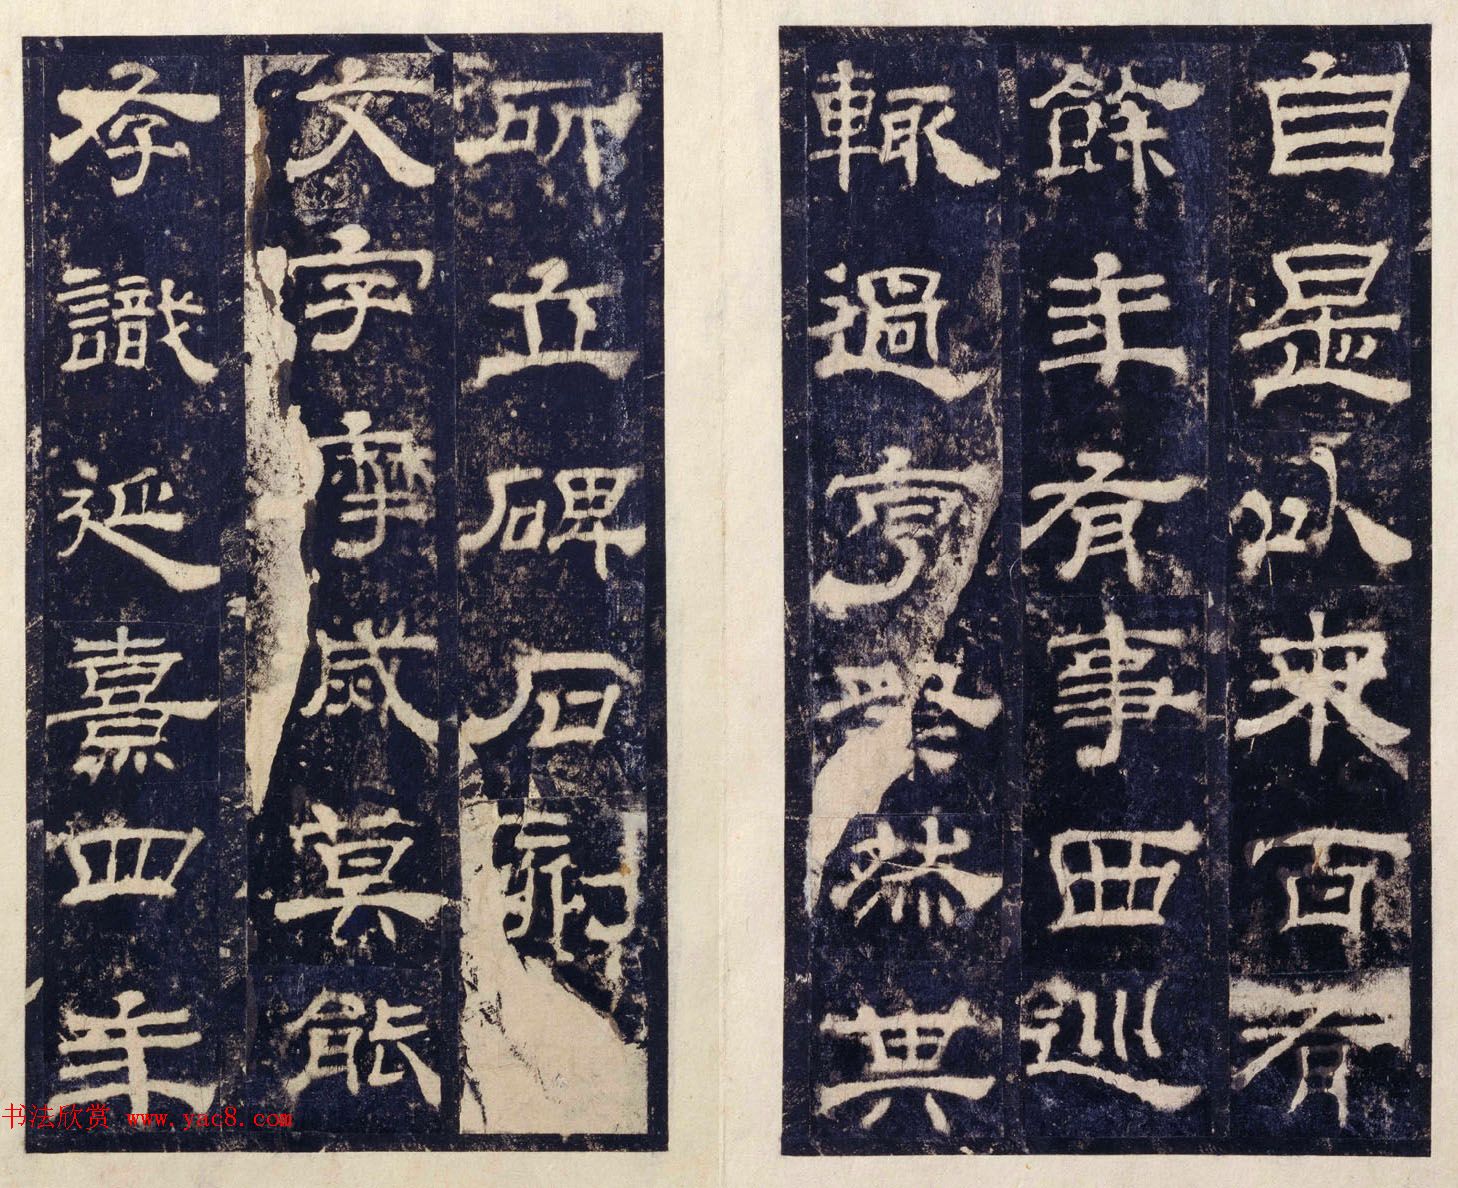 自是以來百有
餘年有事西巡
輒過亨祭然其
所立碑石刻
文字摩滅莫能
存識延熹四年
书法欣赏 www.yac8.com